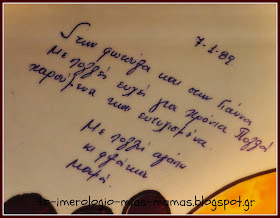 7-1-89
Στην φωτούλα και στην Γιάννα
Με πολλές ευχές για χρόνια Πολλά
χαρούμενα και ευτυχισμένα.
Με πολλή αγάπη
κι φιλάκια
μαμά.
to-imerologio-mias-mamas.blogspot.gr